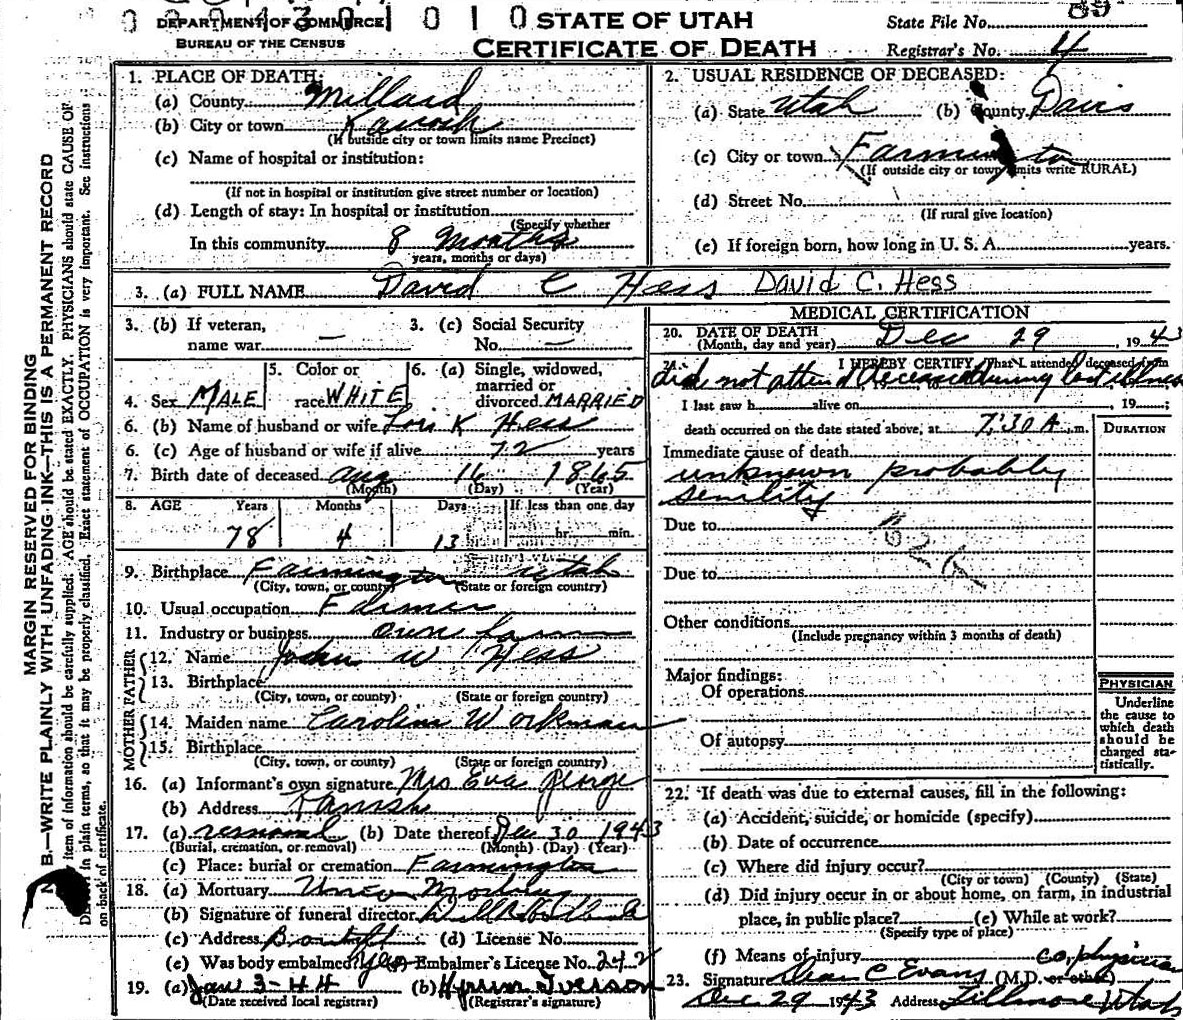 0 0 0 4 3 0 1 0 1 0
DEPARTMENT OF COMMERCE
BUREAU OF THE CENSUS
STATE OF UTAH
CERTIFICATE OF DEATH
State File No. 89
Registrar's No. 4
MARGIN RESERVED FOR BINDING
N. B.—WRITE PLAINLY WITH UNFADING INK—THIS IS A PERMANENT RECORD
item of information should be carefully supplied. AGE should be stated EXACTLY. PHYSICIANS should state CAUSE OF
in plain terms, so that it may be properly classified. Exact statement of OCCUPATION is very important. See instructions
on back of certificate.
1. PLACE OF DEATH:
(a) County Millard
(b) City or town Kanosh
(If outside city or town limits name Precinct)
(c) Name of hospital or institution:
(If not in hospital or institution give street number or location)
(d) Length of stay: In hospital or institution
(Specify whether
In this community 8 Months
years, months or days)
2. USUAL RESIDENCE OF DECEASED:
(a) State Utah (b) County Davis
(c) City or town Farmington
(If outside city or town limits write RURAL)
(d) Street No.
(If rural give location)
(e) If foreign born, how long in U. S. A. years.
3. (a) FULL NAME David C Hess David C. Hess
3. (b) If veteran, name war — 3. (c) Social Security No. —
4. Sex MALE 5. Color or race WHITE 6. (a) Single, widowed, married or divorced MARRIED
6. (b) Name of husband or wife Lois K Hess
6. (c) Age of husband or wife if alive 72 years
7. Birth date of deceased Aug 16 1865
(Month) (Day) (Year)
8. AGE Years Months Days If less than one day
78 4 13 hr. min.
9. Birthplace Farmington Utah
(City, town, or county) (State or foreign country)
10. Usual occupation Farmer
11. Industry or business own farm
FATHER
12. Name John W Hess
13. Birthplace
(City, town, or county) (State or foreign country)
MOTHER
14. Maiden name Caroline Workman
15. Birthplace
(City, town, or county) (State or foreign country)
16. (a) Informant's own signature Mrs Eva George
(b) Address Kanosh
17. (a) removal (b) Date thereof Dec 30 1943
(Burial, cremation, or removal) (Month) (Day) (Year)
(c) Place: burial or cremation Farmington
18. (a) Mortuary Union Mortuary
(b) Signature of funeral director
(c) Address Bountiful (d) License No.
(e) Was body embalmed? Yes (f) Embalmer's License No. 242
19. (a) Jan 3-44 (b) Hyrum Iverson
(Date received local registrar) (Registrar's signature)
MEDICAL CERTIFICATION
20. DATE OF DEATH Dec 29, 1943
(Month, day and year)
I HEREBY CERTIFY, That I attended deceased from
did not attend deceased during last illness
I last saw h alive on , 19 ;
death occurred on the date stated above, at 7:30 A. m.
DURATION
Immediate cause of death
unknown probably
senility
Due to
Due to
Other conditions
(Include pregnancy within 3 months of death)
Major findings:
Of operations
Of autopsy
PHYSICIAN
Underline
the cause to
which death
should be
charged sta-
tistically.
22. If death was due to external causes, fill in the following:
(a) Accident, suicide, or homicide (specify)
(b) Date of occurrence
(c) Where did injury occur?
(City or town) (County) (State)
(d) Did injury occur in or about home, on farm, in industrial
place, in public place? (e) While at work?
(Specify type of place)
(f) Means of injury
co. physician
23. Signature Dean C Evans (M.D. or other)
Dec 29 1943 Address Fillmore Utah